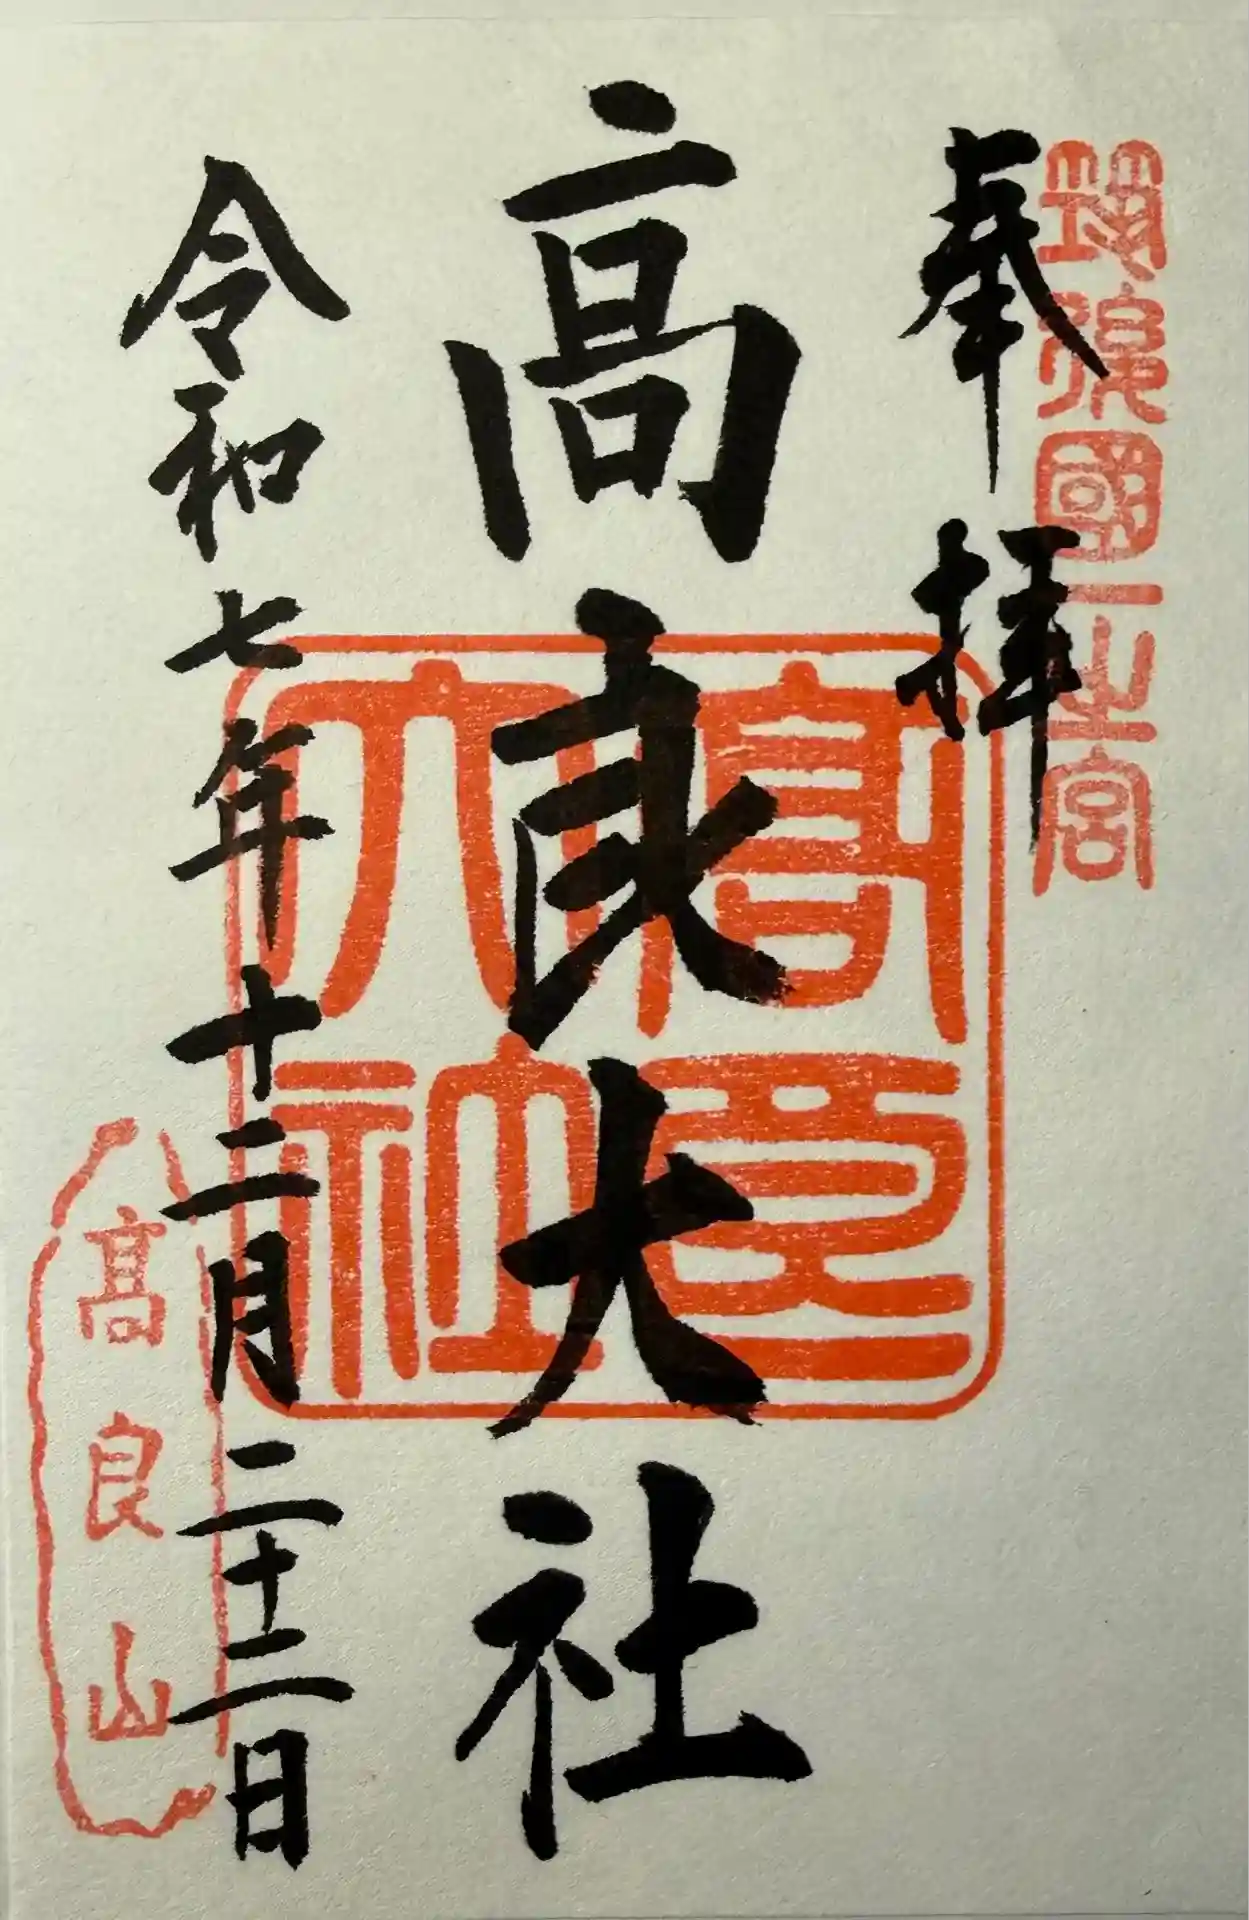 筑後國一之宮
奉拝
髙良大社
髙良大社
令和七年十二月二十二日
髙良山